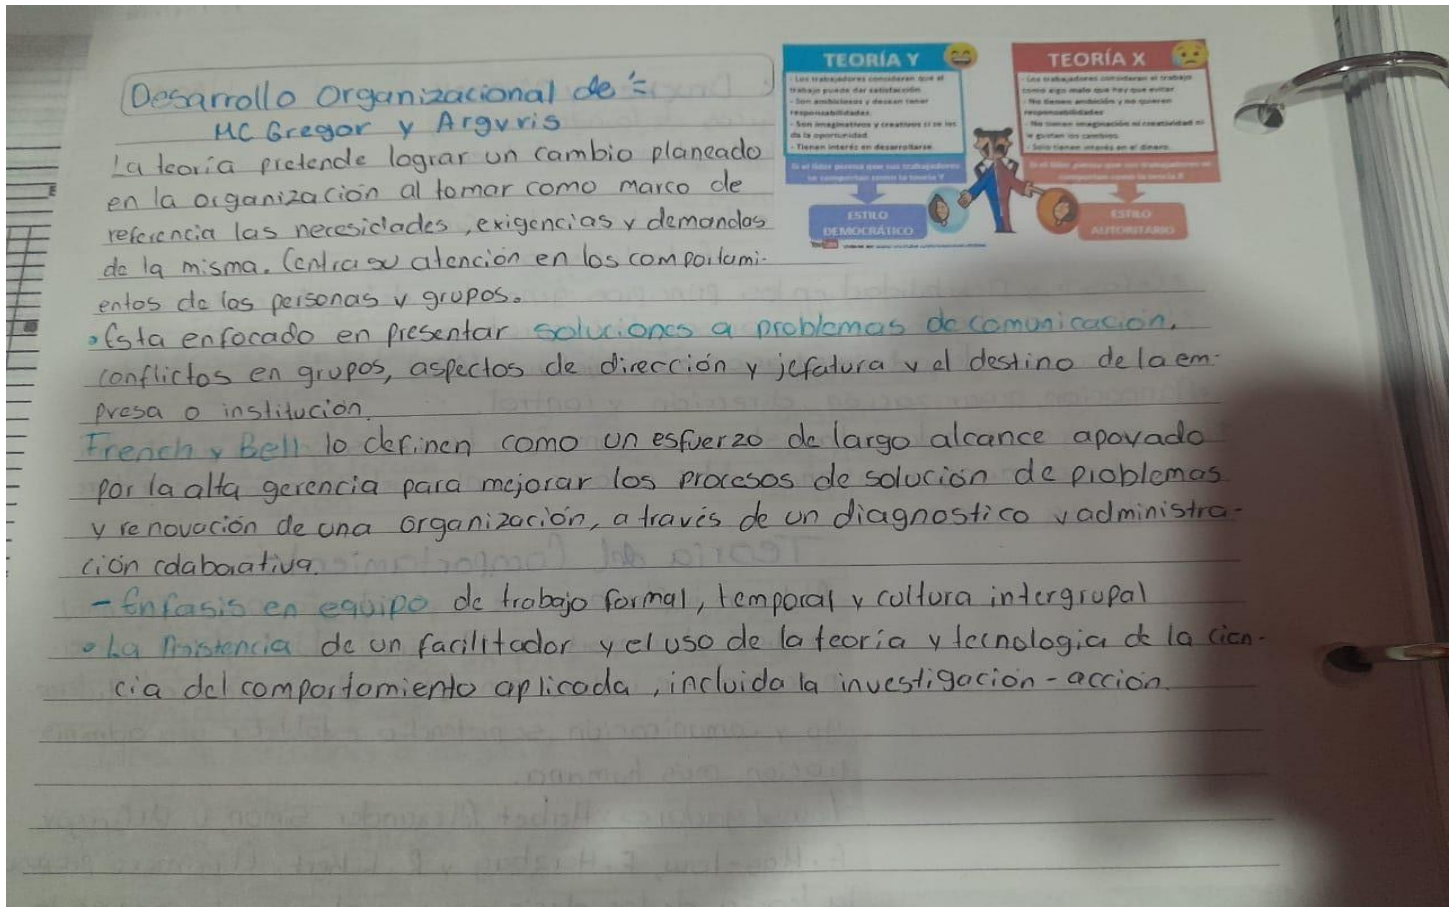 Desarrollo Organizacional de =
MC Gregor y Argyris
La teoría pretende lograr un cambio planeado
en la organización al tomar como marco de
referencia las necesidades, exigencias y demandas
de la misma. Centra su atención en los comportami-
entos de las personas y grupos.
• Esta enfocado en presentar soluciones a problemas de comunicación,
conflictos en grupos, aspectos de dirección y jefatura y el destino de la em-
presa o institución.
French y Bell lo definen como un esfuerzo de largo alcance apoyado
por la alta gerencia para mejorar los procesos de solución de problemas
y renovación de una organización, a través de un diagnostico y administra-
ción colaborativa.
- Enfasis en equipo de trabajo formal, temporal y cultura intergrupal
• La Asistencia de un facilitador y el uso de la teoría y tecnologia de la cien-
cia del comportamiento aplicada, incluida la investigación - acción.
TEORÍA Y
- Los trabajadores consideran que el
trabajo puede dar satisfacción
- Son ambiciosos y desean tener
responsabilidades
- Son imaginativos y creativos si se les
da la oportunidad
- Tienen interés en desarrollarse
Si el líder piensa que sus trabajadores
se comportan como la teoría Y
ESTILO
DEMOCRÁTICO
TEORÍA X
- Los trabajadores consideran el trabajo
como algo malo que hay que evitar
- No tienen ambición y no quieren
responsabilidades
- No tienen imaginación ni creatividad ni
le gustan los cambios
- Solo tienen interés en el dinero
ESTILO
AUTORITARIO